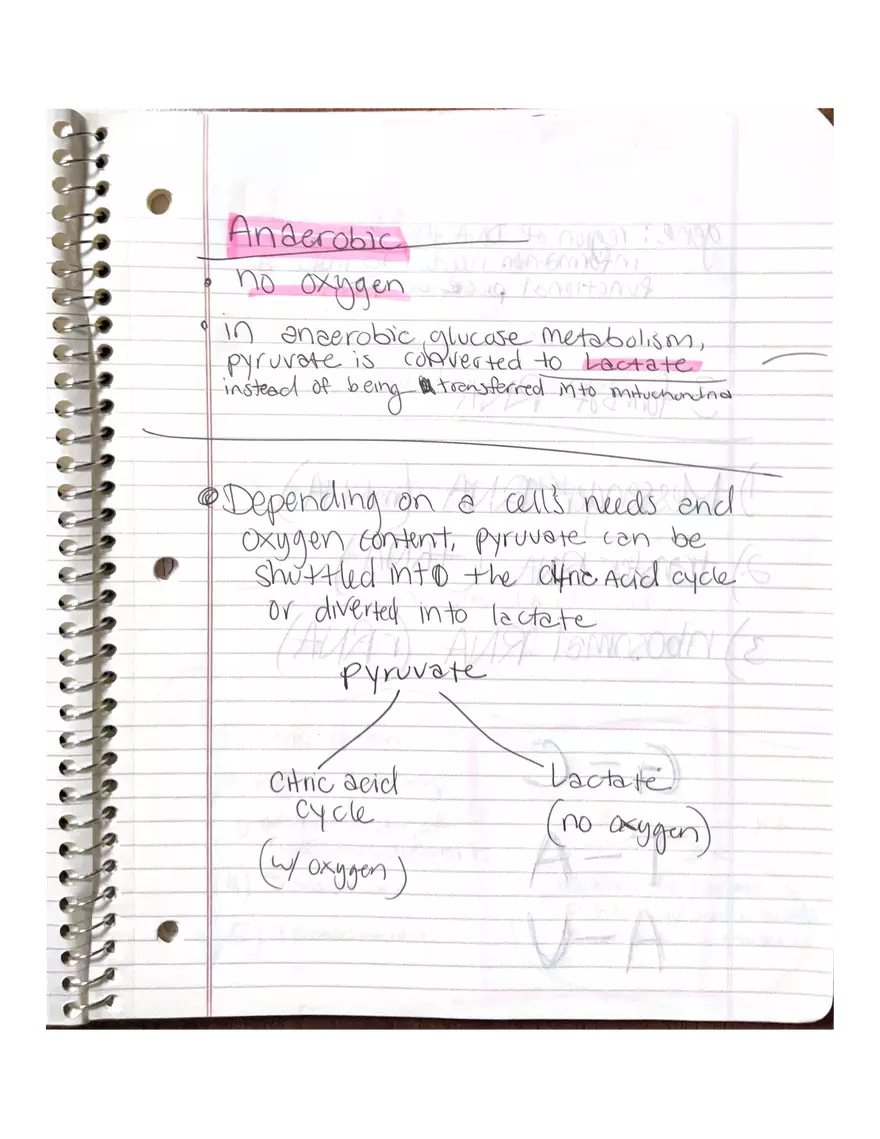 Anaerobic
no oxygen
in anaerobic glucose metabolism,
pyruvate is converted to Lactate
instead of being transferred into mitochondria
Depending on a cell's needs and
oxygen content, pyruvate can be
shuttled into the Citric Acid cycle
or diverted into lactate
pyruvate
Citric acid
cycle
(w/ oxygen)
Lactate
(no oxygen)